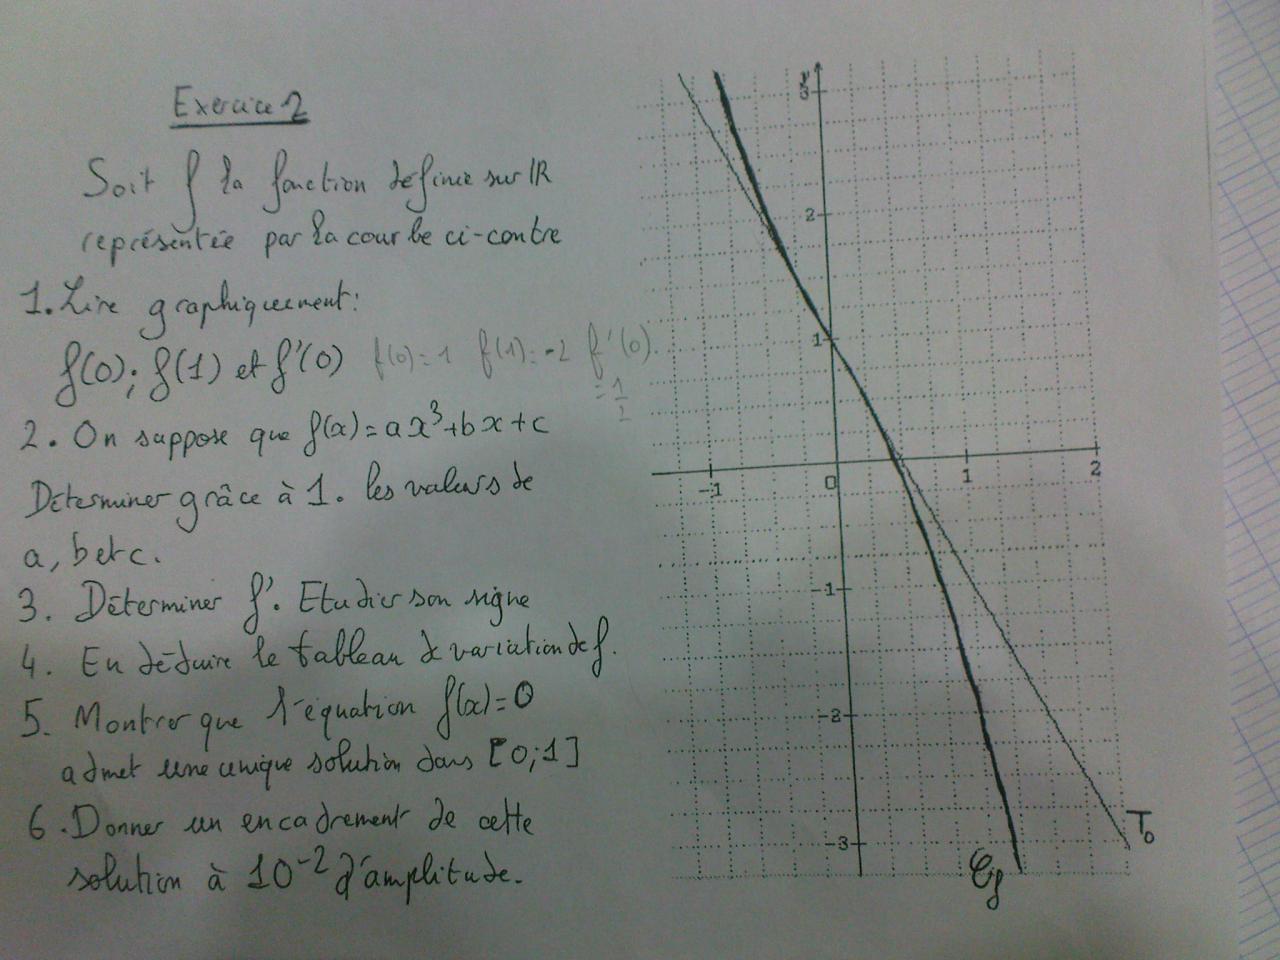 Exercice 2
Soit f la fonction définie sur IR
représentée par la courbe ci-contre
1. Lire graphiquement:
f(0); f(1) et f'(0) f(0)=1 f(1)=-2 f'(0)
=1/2
2. On suppose que f(x)=ax³+bx+c
Déterminer grâce à 1. les valeurs de
a, b et c.
3. Déterminer f'. Etudier son signe
4. En déduire le tableau de variation de f.
5. Montrer que l'équation f(x)=0
admet une unique solution dans [0;1]
6. Donner un encadrement de cette
solution à 10⁻² d'amplitude.
y
3
2
1
-1 0 1 2
-1
-2
-3
T₀
Cf